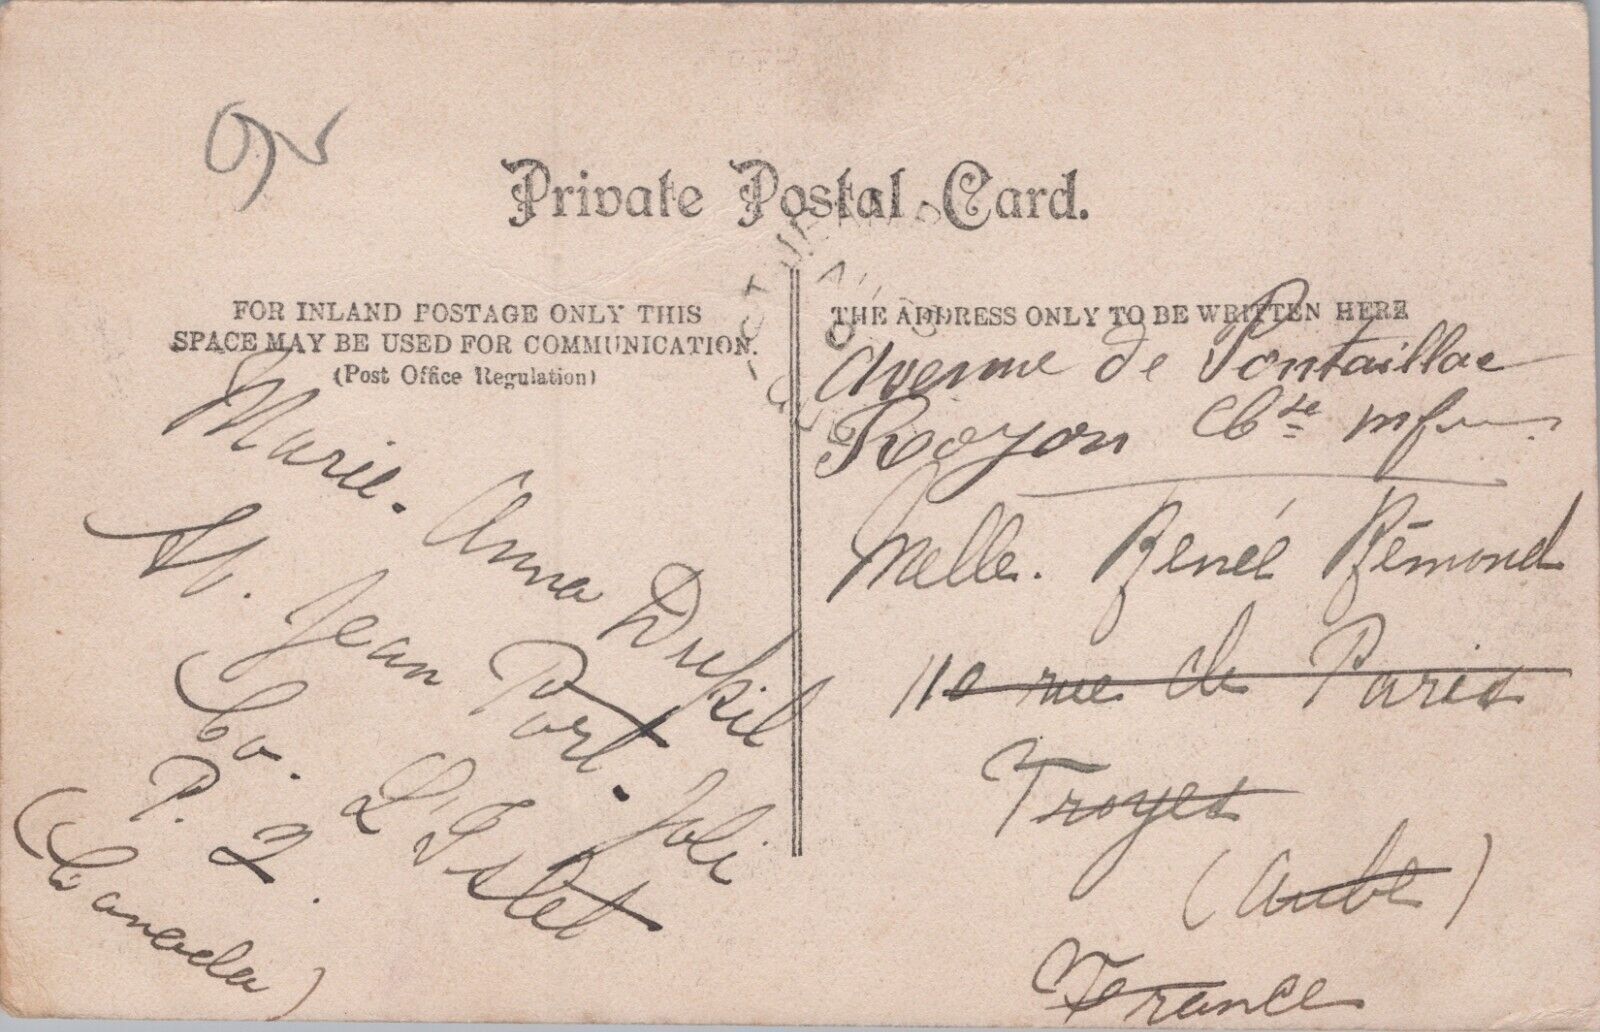 92
Private Postal Card.
FOR INLAND POSTAGE ONLY THIS
SPACE MAY BE USED FOR COMMUNICATION.
(Post Office Regulation)
THE ADDRESS ONLY TO BE WRITTEN HERE
Marie-Anna Dupil
St. Jean Port-Joli
Co. L'Islet
P. Q.
(Canada)
Avenue de Pontaillac
Royan
Melle. Renée Rémond
110 rue de Paris
Troyes
(Aube)
France